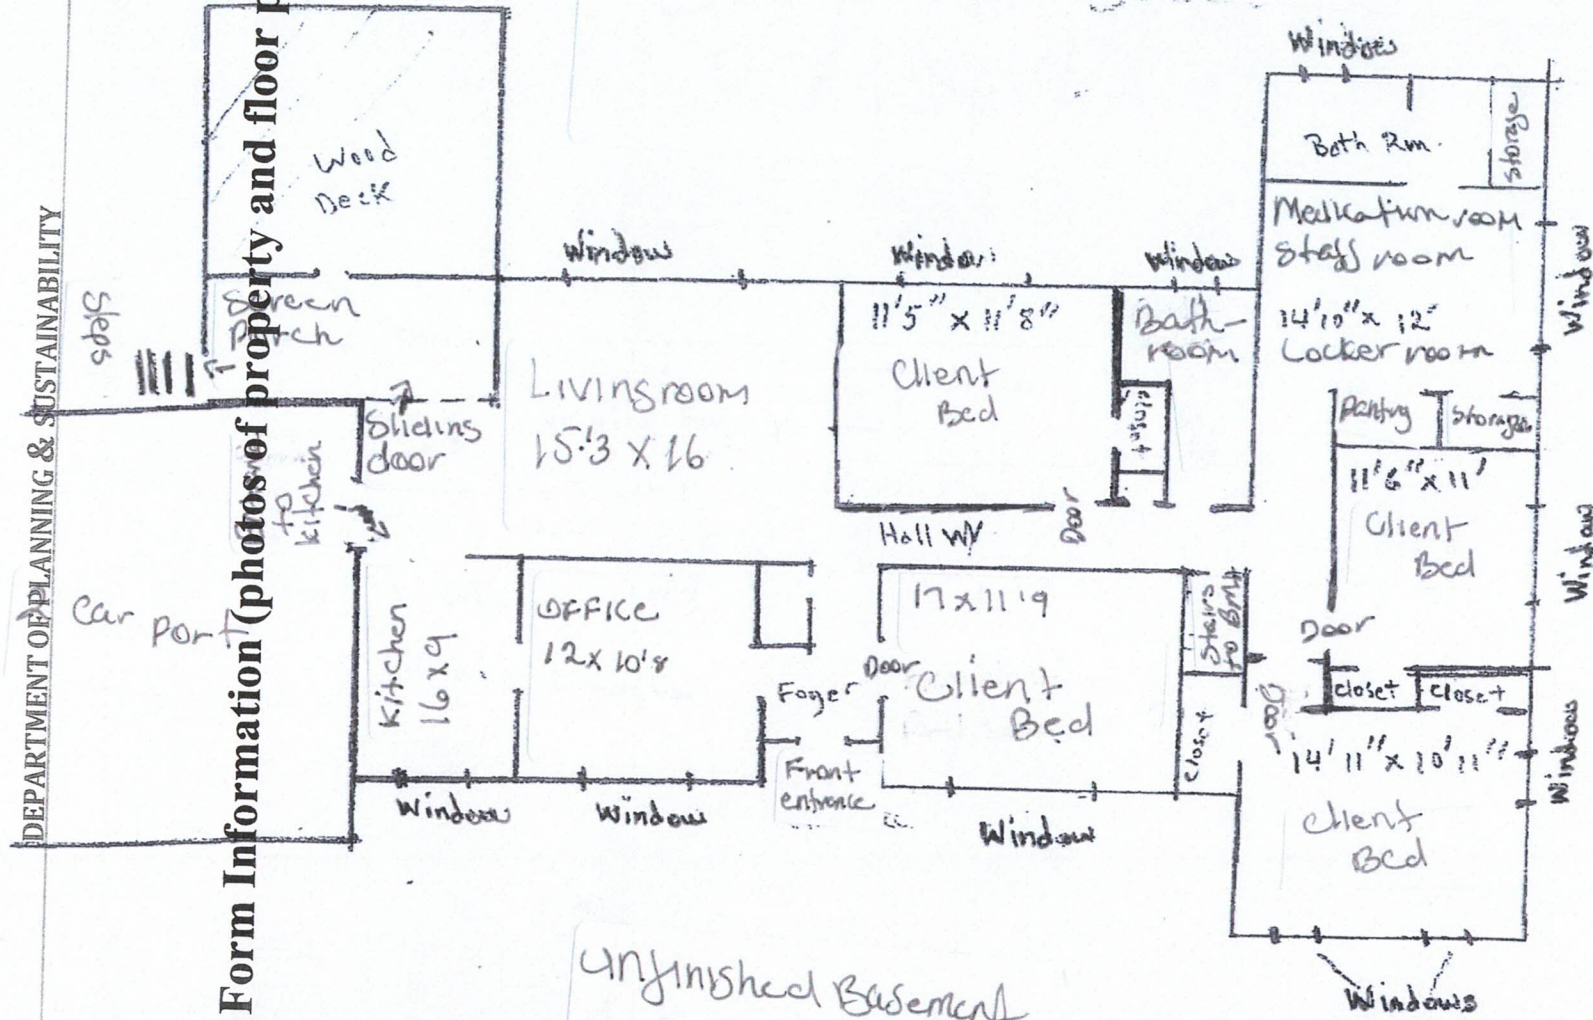 DEPARTMENT OF PLANNING & SUSTAINABILITY
Form Information (photos of property and floor p
Wood
Deck
Screen
Porch
Steps
Sliding
door
to
kitchen
Car Port
Window
Livingroom
15'3 X 16
Kitchen
16 x 9
Window
OFFICE
12 x 10'8
Window
Foyer
Front
entrance
Window
11'5" x 11'8"
Client
Bed
Hall WY
Door
Window
Bath-
room
closet
Door
17 x 11'9
Client
Bed
Window
Stairs
to BMT
Closet
Windows
Bath Rm.
Storage
Medication room
Staff room
14'10" x 12'
Locker room
Window
Pantry
Storage
11'6" x 11'
Client
Bed
Window
Door
closet
closet
Door
14'11" x 10'11"
Client
Bed
Windows
Windows
Unfinished Basement